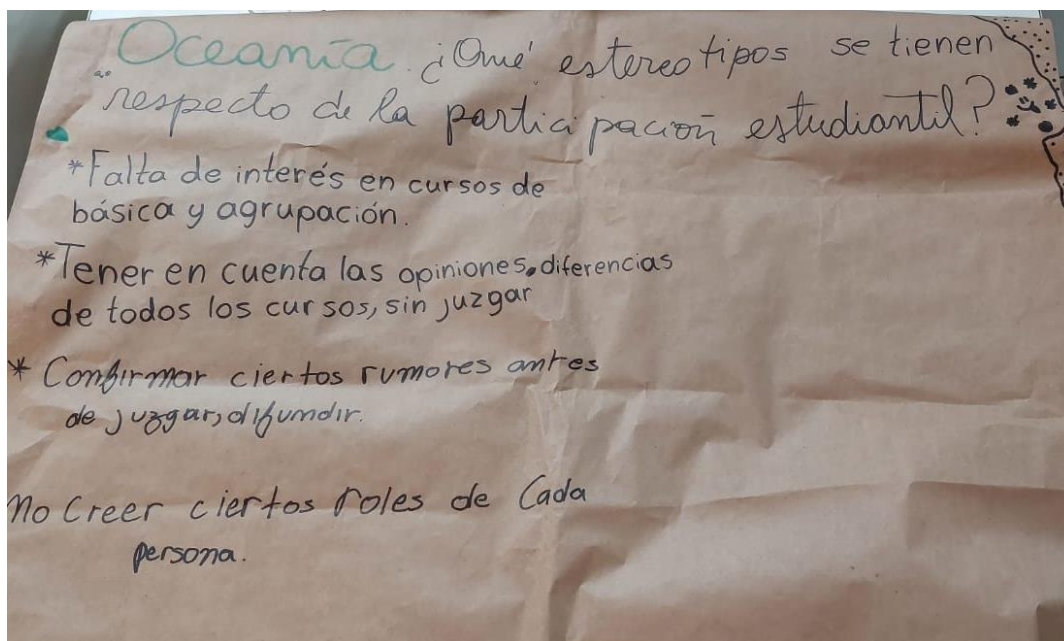 Oceanía ¿Qué estereotipos se tienen
respecto de la participación estudiantil?
*Falta de interés en cursos de
básica y agrupación.
*Tener en cuenta las opiniones, diferencias
de todos los cursos, sin juzgar
* Confirmar ciertos rumores antes
de juzgar, difundir.
no Creer ciertos roles de Cada
persona.